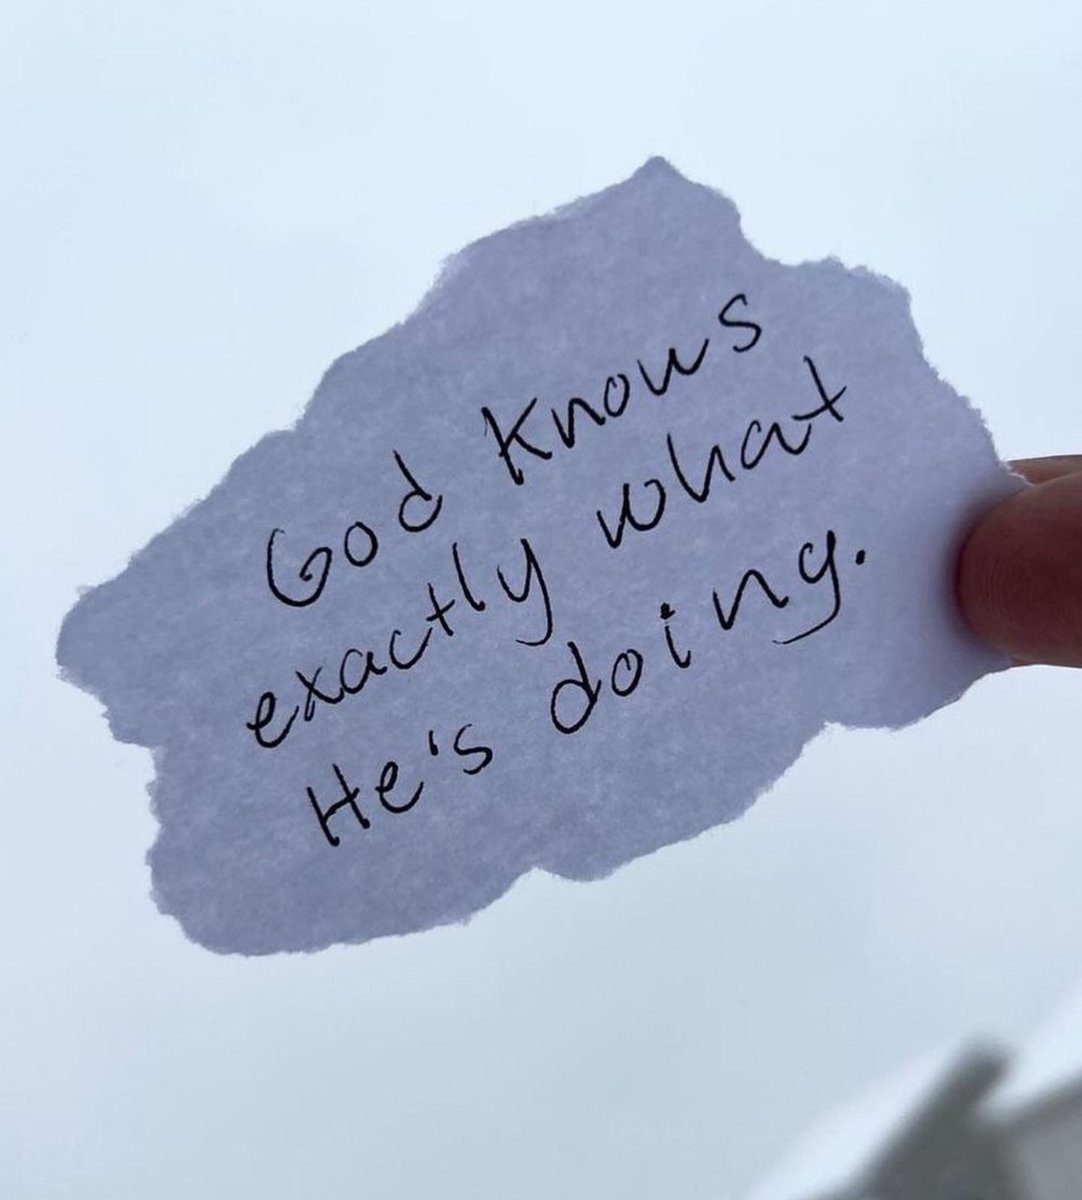 God knows
exactly what
He's doing.